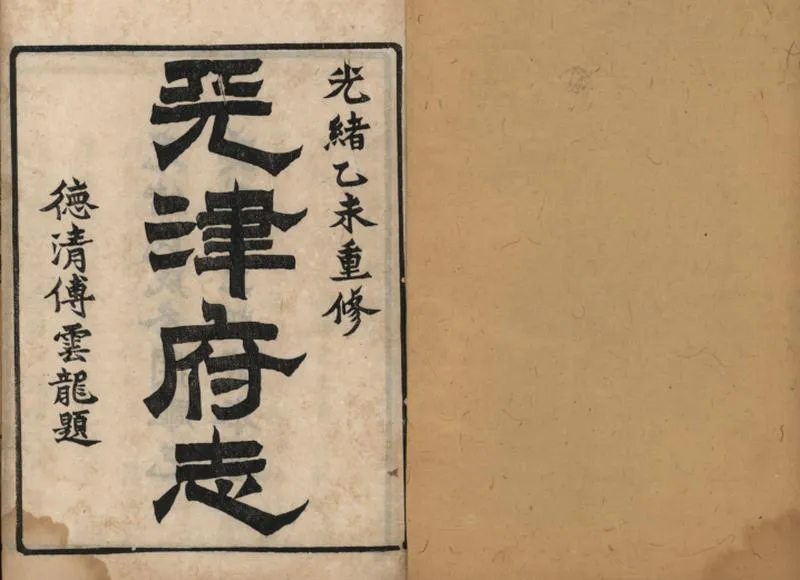 光緒乙未重修
天津府志
德清傅雲龍題